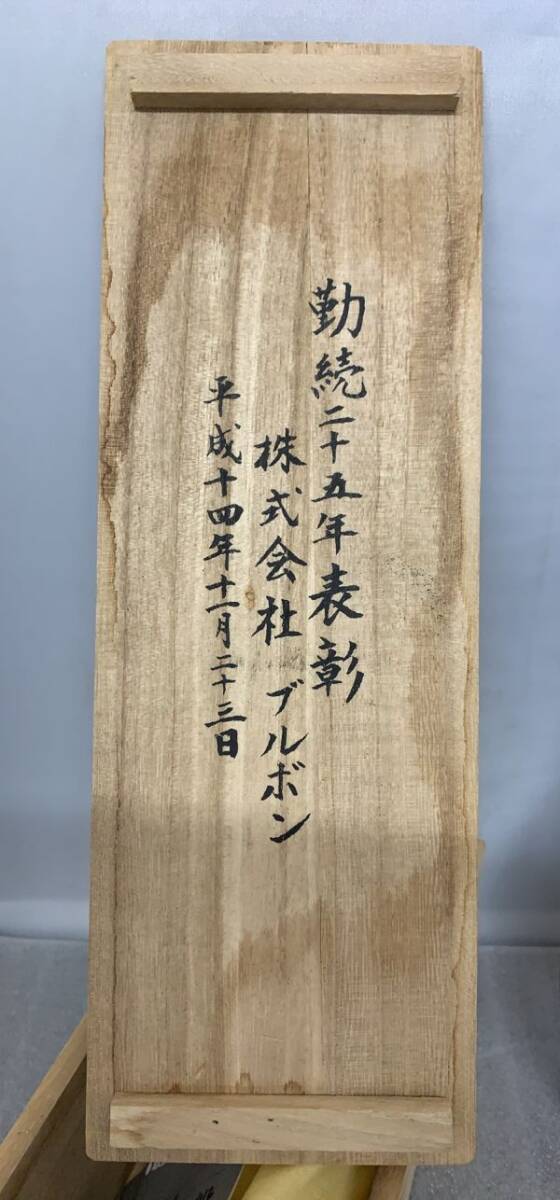 勤続二十五年表彰
株式会社 ブルボン
平成十四年十一月二十三日